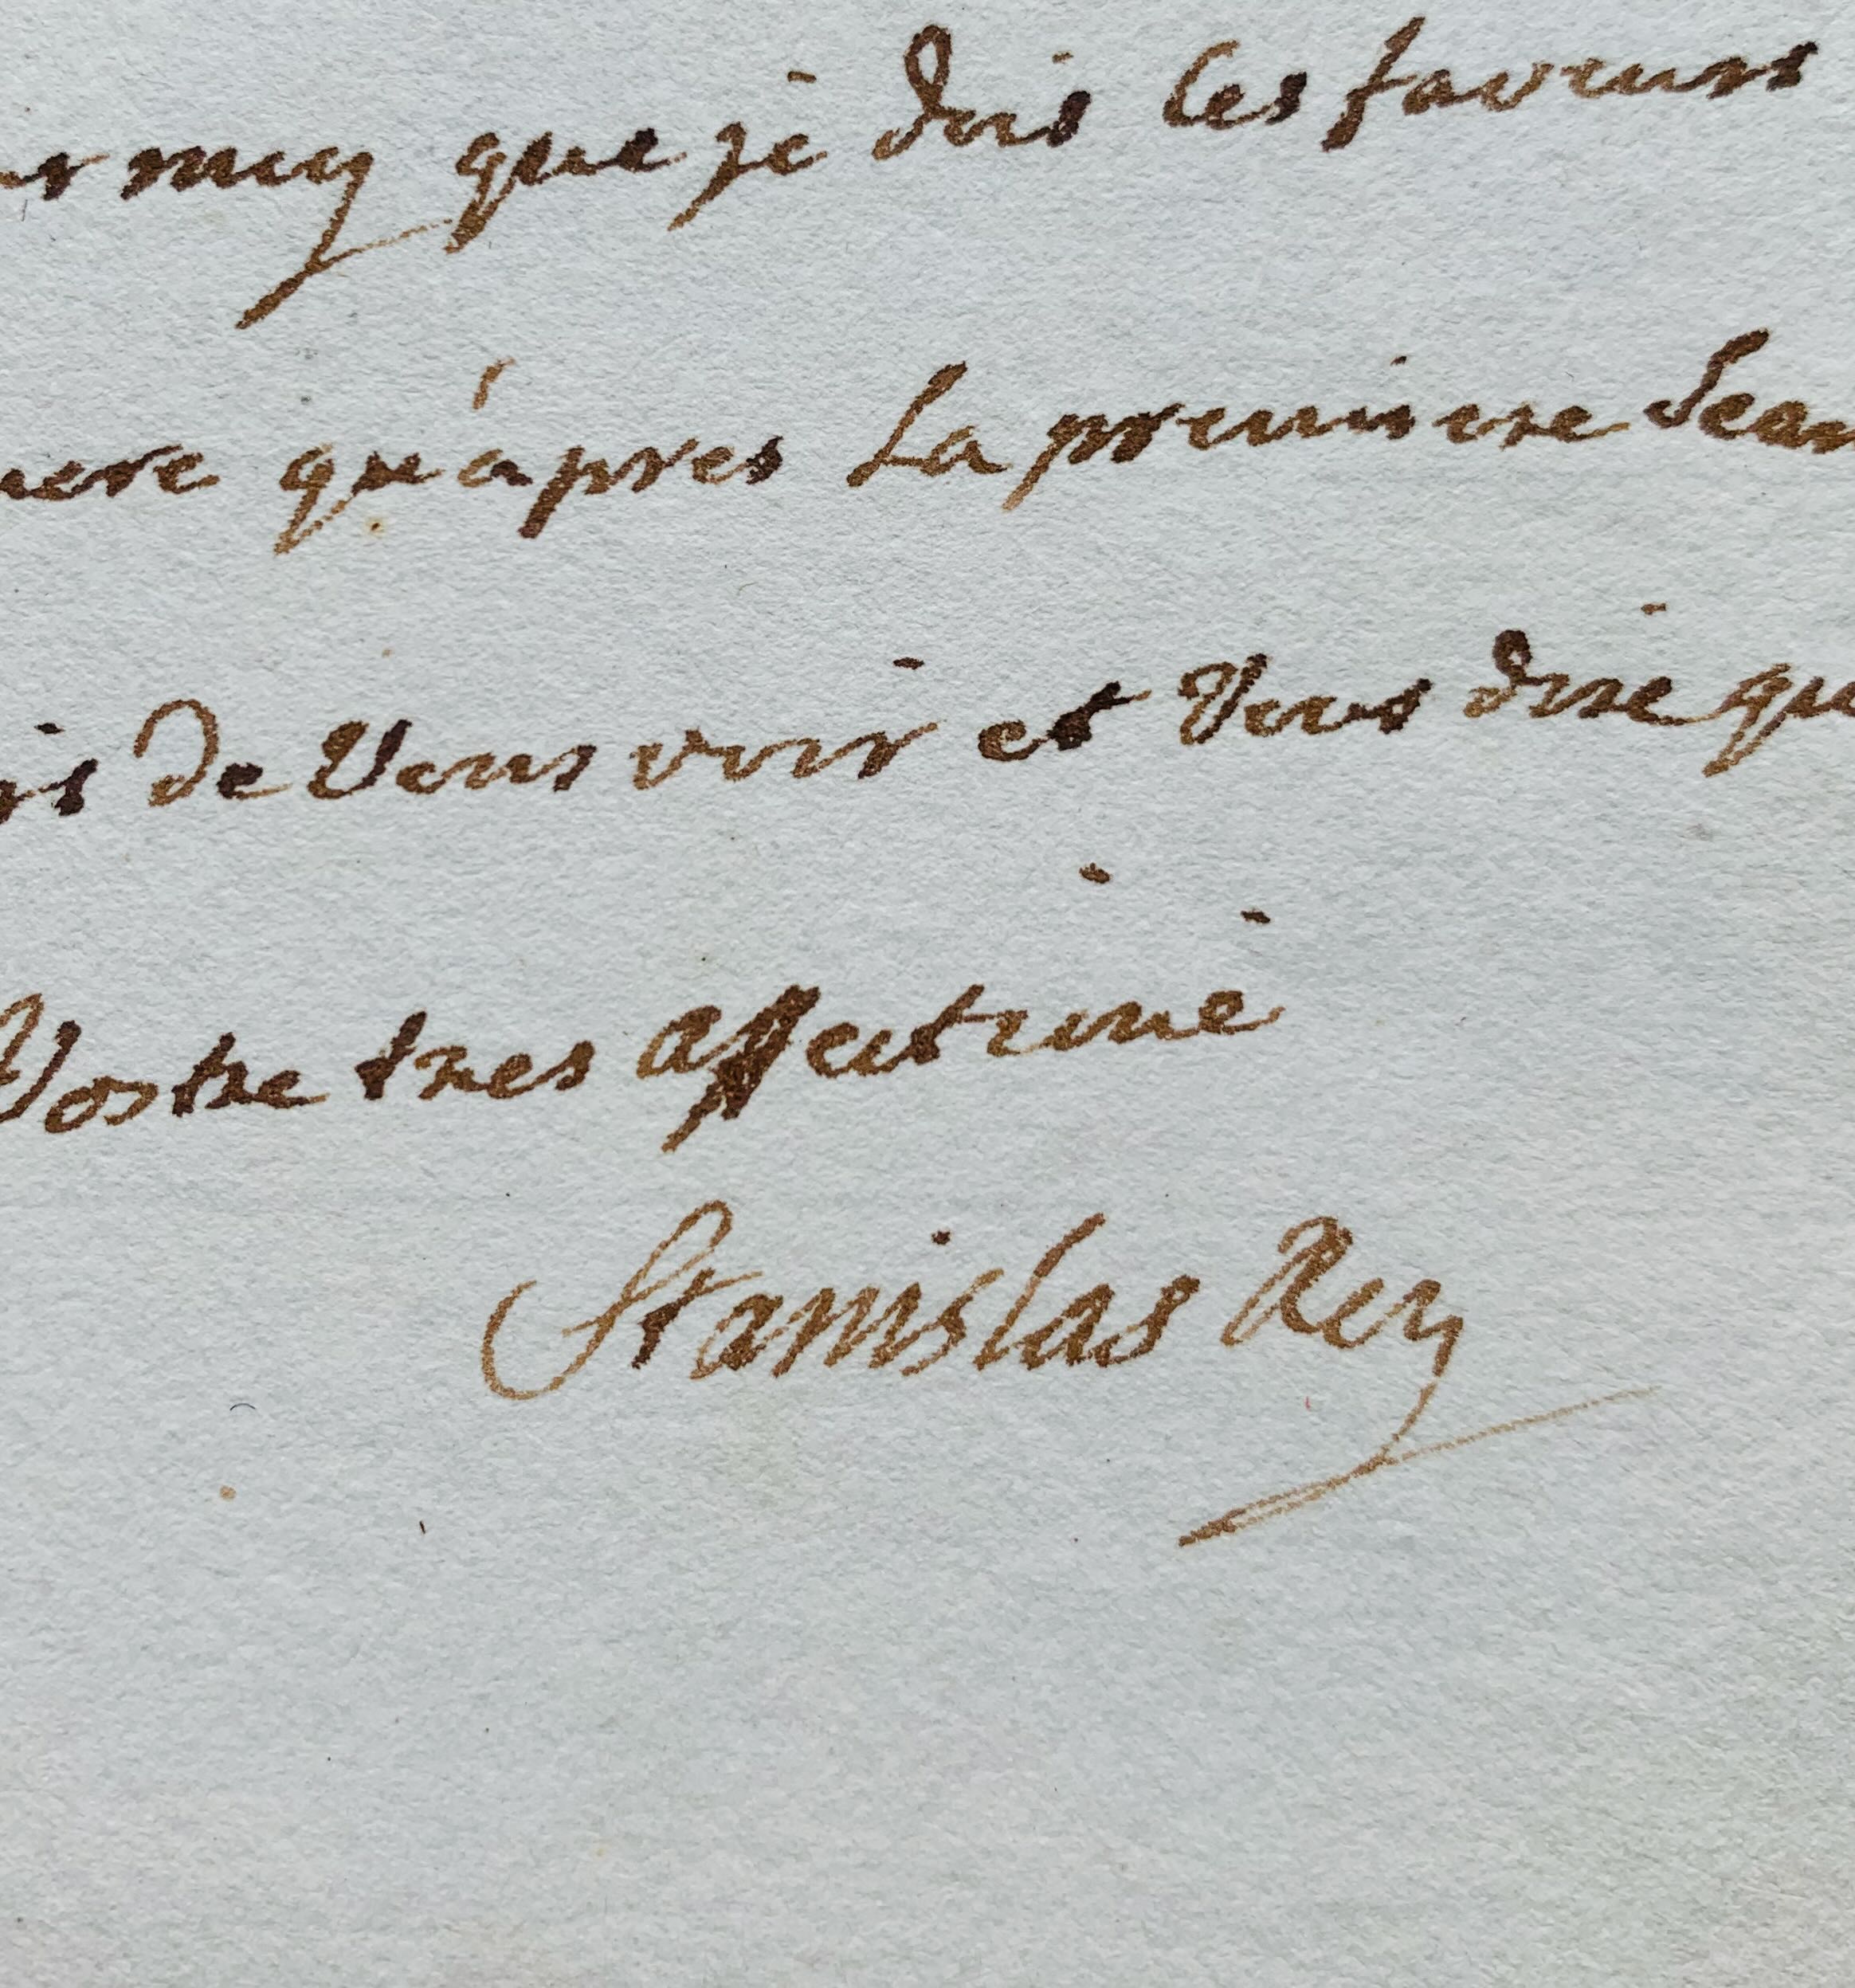 muy que je dois les faveurs
qu'apres La premiere Sean
de Vous voir et Vous dire qu
Vostre tres affectioné
Stanislas Rey